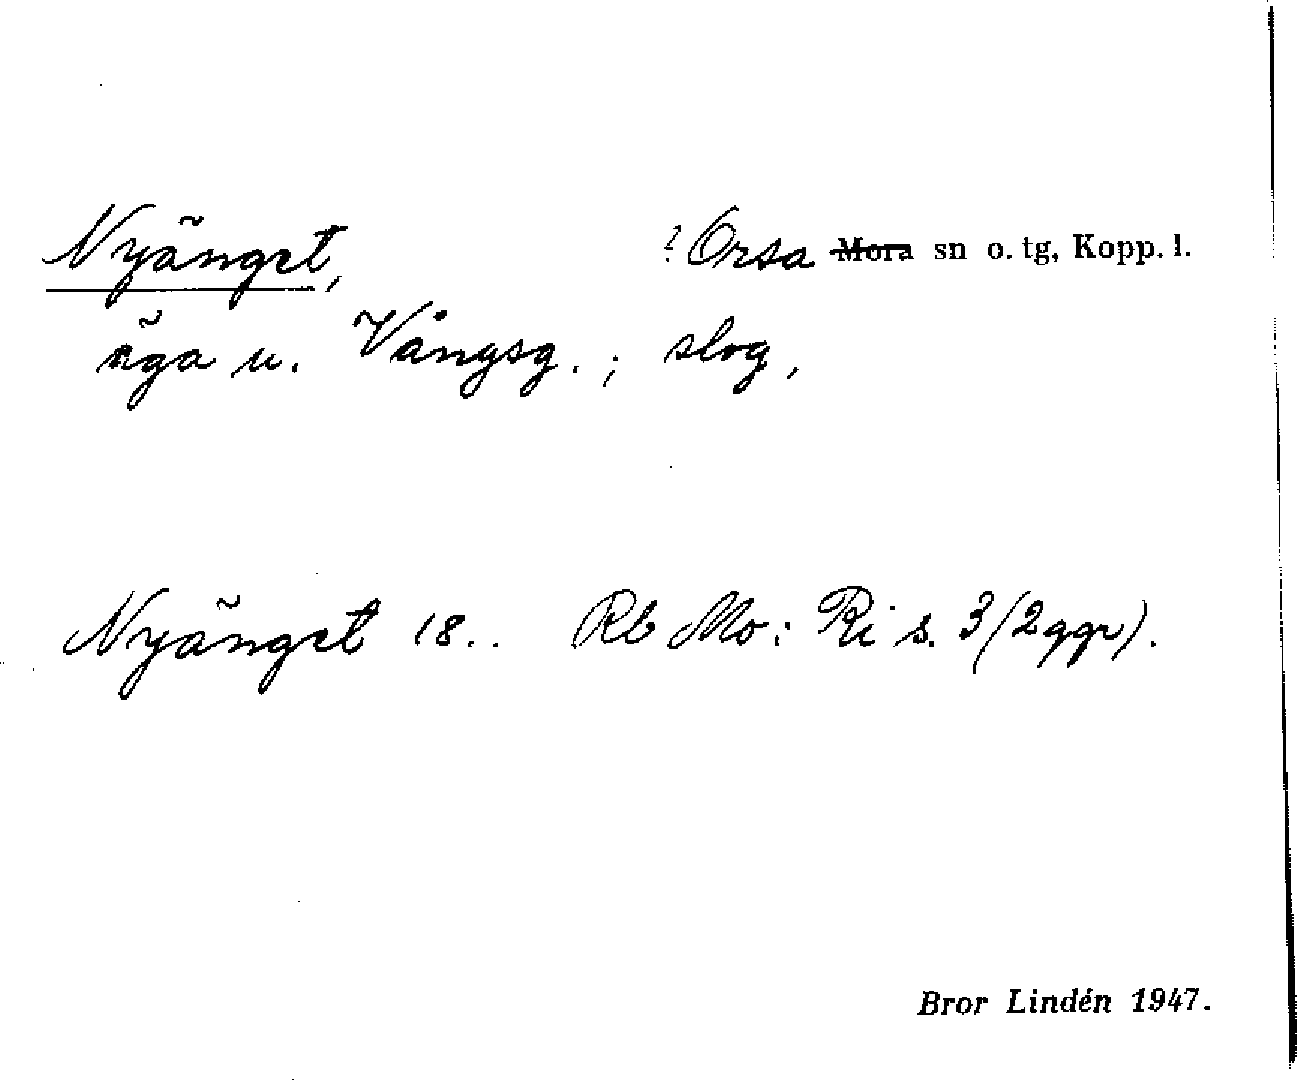 Nyänget, ? Orsa Mora sn o. tg, Kopp. l.
äga u. Vångsg. ; slog,
Nyänget 18.. Rb Mo: Ri s. 3 (2 ggr).
Bror Lindén 1947.